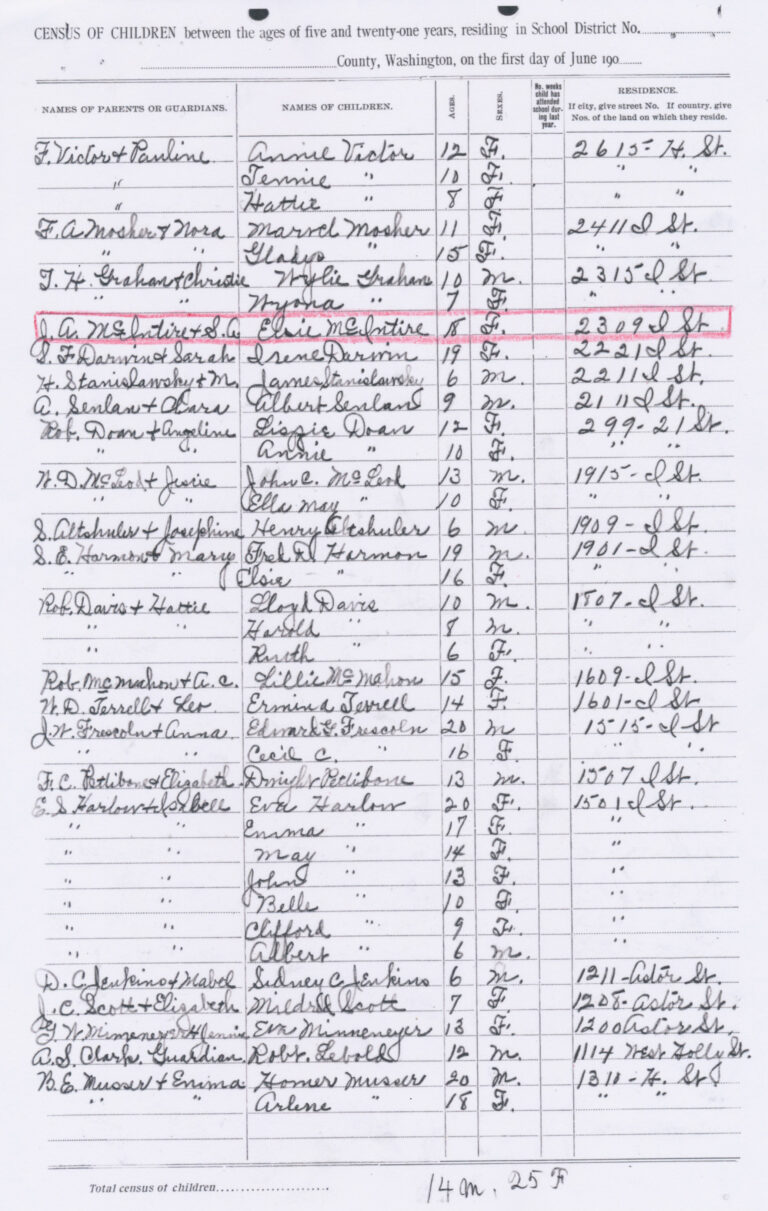 CENSUS OF CHILDREN between the ages of five and twenty-one years, residing in School District No.
County, Washington, on the first day of June 190
NAMES OF PARENTS OR GUARDIANS. NAMES OF CHILDREN. AGES. SEXES. No. weeks child has attended school during last year. RESIDENCE. If city, give street No. If country, give Nos. of the land on which they reside.
F. Victor & Pauline Annie Victor 12 F. 2615- H. St.
" Jennie " 10 F. " "
" Hattie " 8 F. " "
F. A. Mosher & Nora Marvel Mosher 11 F. 2411 I St.
" " Gladys " 15 F. " "
T. H. Graham & Christie Wylie Graham 10 M. 2315 I St.
" " Wyona " 7 F. " "
J. A. McIntire & S.A Elsie McIntire 18 F. 2309 I St
S. F. Darwin & Sarah Irene Darwin 19 F. 2221 I St.
H. Stanislawsky & M. James Stanislawsky 6 M. 2211 I St.
A. Senlan & Clara Albert Senlan 9 M. 2111 I St.
Rob. Doan & Angeline Lizzie Doan 12 F. 299-21 St.
" " Annie " 10 F. " "
W. D. McLeod & Jessie John C. McLeod 13 M. 1915- I St.
" " Ella May " 10 F. " "
S. Altshuler & Josephine Henry Altshuler 6 M 1909- I St.
S. E. Harmon & Mary Fred D. Harmon 19 M. 1901- I St.
" " Elsie " 16 F. " "
Rob. Davis & Hattie Lloyd Davis 10 M. 1807- I St.
" " Harold " 8 M. " "
" Ruth " 6 F. " "
Rob. McMahon & A. C. Lillie McMahon 15 F. 1609- I St.
W. D. Terrell & Leo Ermina Terrell 14 F. 1601- I St.
J. W. Frescoln & Anna Edward G. Frescoln 20 M 1515- I St
" " Cecil C. " 16 F. " "
F. C. Pettibone & Elizabeth. Dwight Pettibone 13 M. 1507 I St.
E. S Harlow & Isabell Eva Harlow 20 F. 1501 I St.
" " Emma " 17 F. "
" " May " 14 F. "
" " John " 13 F. "
" " Belle " 10 F. "
" " Clifford " 9 F. "
" " Albert " 6 M. "
D. C. Jenkins & Mabel Sidney C Jenkins 6 M. 1211- Astor St.
J. C. Scott & Elizabeth Mildred Scott 7 F. 1208- Astor St.
& Jennie Eva Minnemeyer 13 F. 1200 Astor St.
A. S. Clark. Guardian. Robt. Lebold 12 M. 1114 West Holly St.
B. E. Musser & Emma Homer Musser 20 M. 1310- H. St
" " Arlene " 18 F. " "
Total census of children 14 M. 25 F